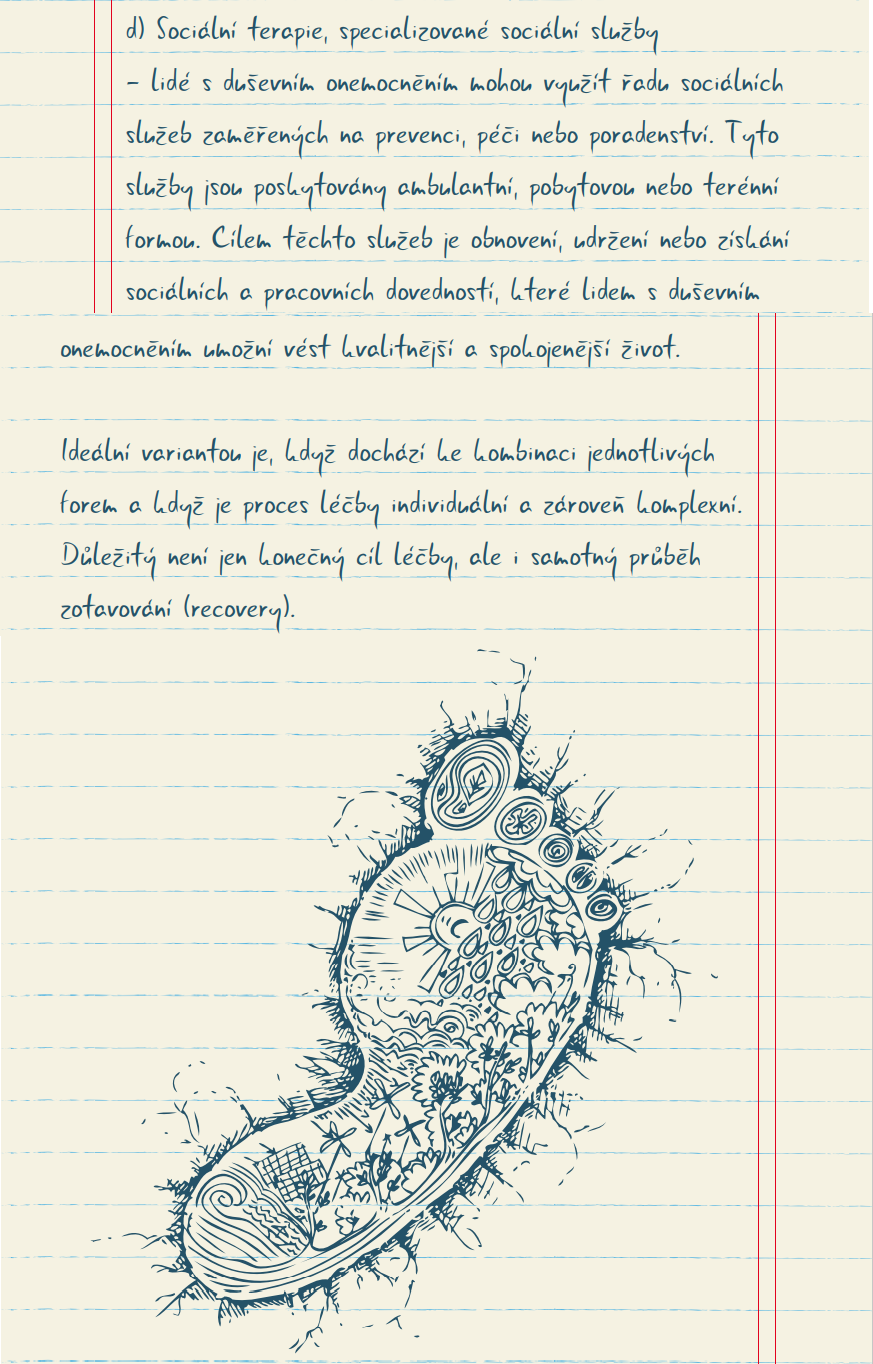 d) Sociální terapie, specializované sociální služby
– lidé s duševním onemocněním mohou využít řadu sociálních
služeb zaměřených na prevenci, péči nebo poradenství. Tyto
služby jsou poskytovány ambulantní, pobytovou nebo terénní
formou. Cílem těchto služeb je obnovení, udržení nebo získání
sociálních a pracovních dovedností, které lidem s duševním
onemocněním umožní vést kvalitnější a spokojenější život.
Ideální variantou je, když dochází ke kombinaci jednotlivých
forem a když je proces léčby individuální a zároveň komplexní.
Důležitý není jen konečný cíl léčby, ale i samotný průběh
zotavování (recovery).